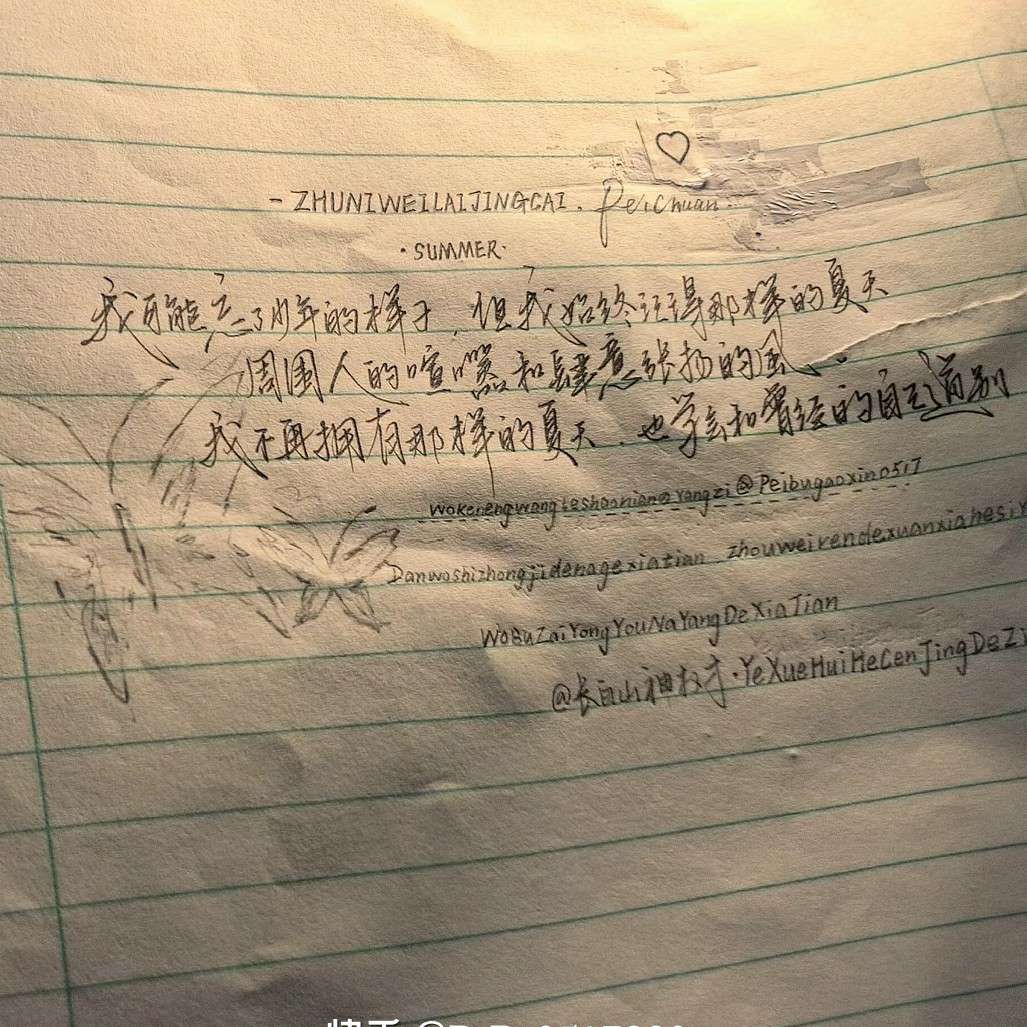 - ZHUNIWEILAIJINGCAI. Peichuan
·SUMMER·
我可能忘了少年的样子,但我始终记得那样的夏天
周围人的喧嚣和肆意张扬的风、
我不再拥有那样的夏天、也学会和曾经的自己道别
Wokenengwangleshaonian@Yangzi@Peibugaoxin0517
Danwoshizhongjidenagexiatian. zhouweirendexuanxiahesiy
WoBuZaiYongYouNaYangDeXiaTian
@长白山神权才·YeXueHuiHeCenJingDeZi
快手